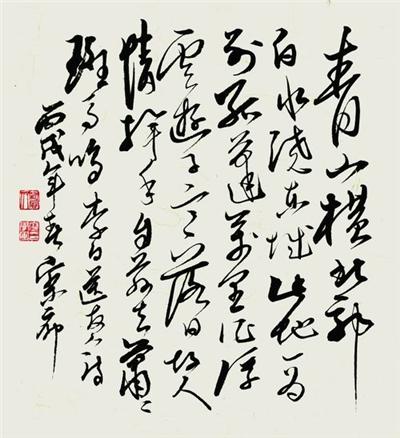 青山横北郭
白水绕东城此地一为
别孤蓬万里征浮
云游子意落日故人
情挥手自兹去萧萧
班马鸣李白送友人诗
丙戌年春